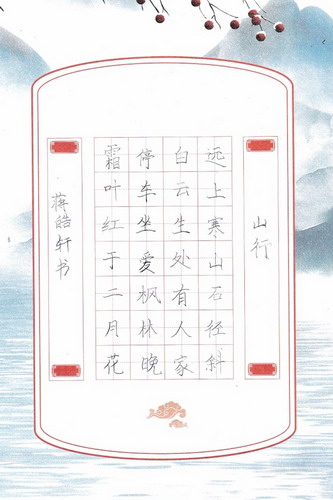 山行
远上寒山石径斜
白云生处有人家
停车坐爱枫林晚
霜叶红于二月花
蒋皓轩书